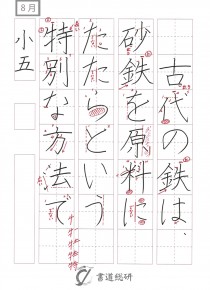 8月
古代の鉄は、
砂鉄を原料に
たたらという
特別な方法で
小五
書道総研